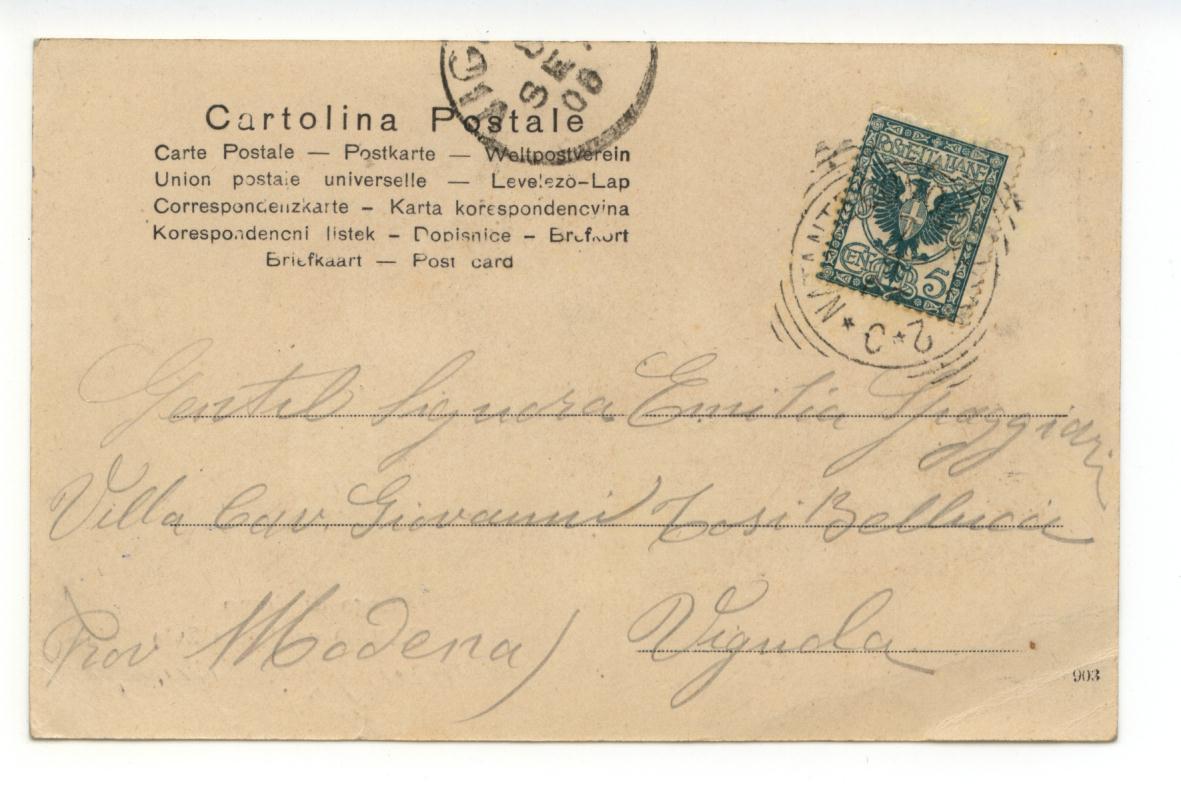 SE
08
Cartolina Postale
Carte Postale — Postkarte — Weltpostverein
Union postale universelle — Levelezò-Lap
Correspondenzkarte – Karta korespondencyina
Korespondencni listek – Dopisnice – Brefkort
Briefkaart — Post card
POSTE ITALIANE
CENT. 5
Gentil Signora Emilia Spaggiari
Villa Cav. Giovanni Tosi Bellucci
Prov Modena) Vignola
903